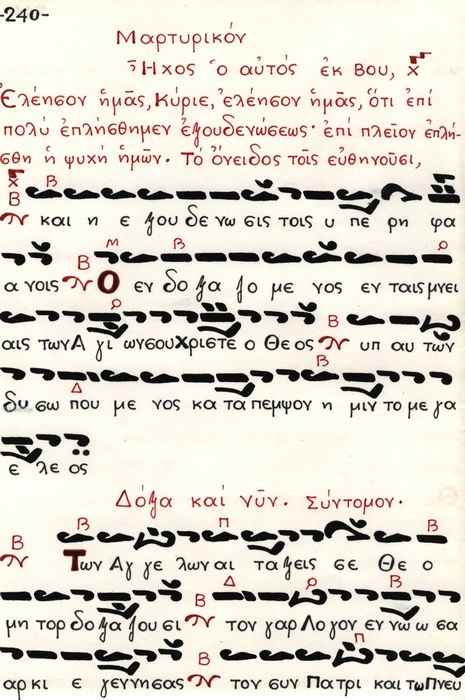 -240-
Μαρτυρικόν
Ἦχος ὁ αὐτός ἐκ Βου,
Ἐλέησον ἡμᾶς, Κύριε, ἐλέησον ἡμᾶς, ὅτι ἐπί
πολύ ἐπλήσθημεν ἐξουδενώσεως· ἐπί πλεῖον ἐπλή-
σθη ἡ ψυχή ἡμῶν. Τό ὄνειδος τοῖς εὐθηνοῦσι,
και η ε ξου δε νω σις τοις υ πε ρη φα
α νοις Ο εν δο ξα ζο με νος εν ταις μνει
αις των Α γι ων σου Χριστε ο Θε ος υπ αυ των
δυ σω που με νος κα τα πεμψον η μιν το με γα
ε λε ος
Δόξα καί νῦν. Σύντομον.
Των Αγ γε λων αι ταξεις σε Θε ο
μη τορ δο ξα ζου σι τον γαρ Λο γον εν νω ω σα
αρ κι ε γεννησας τον συν Πατρι και τω Πνευ